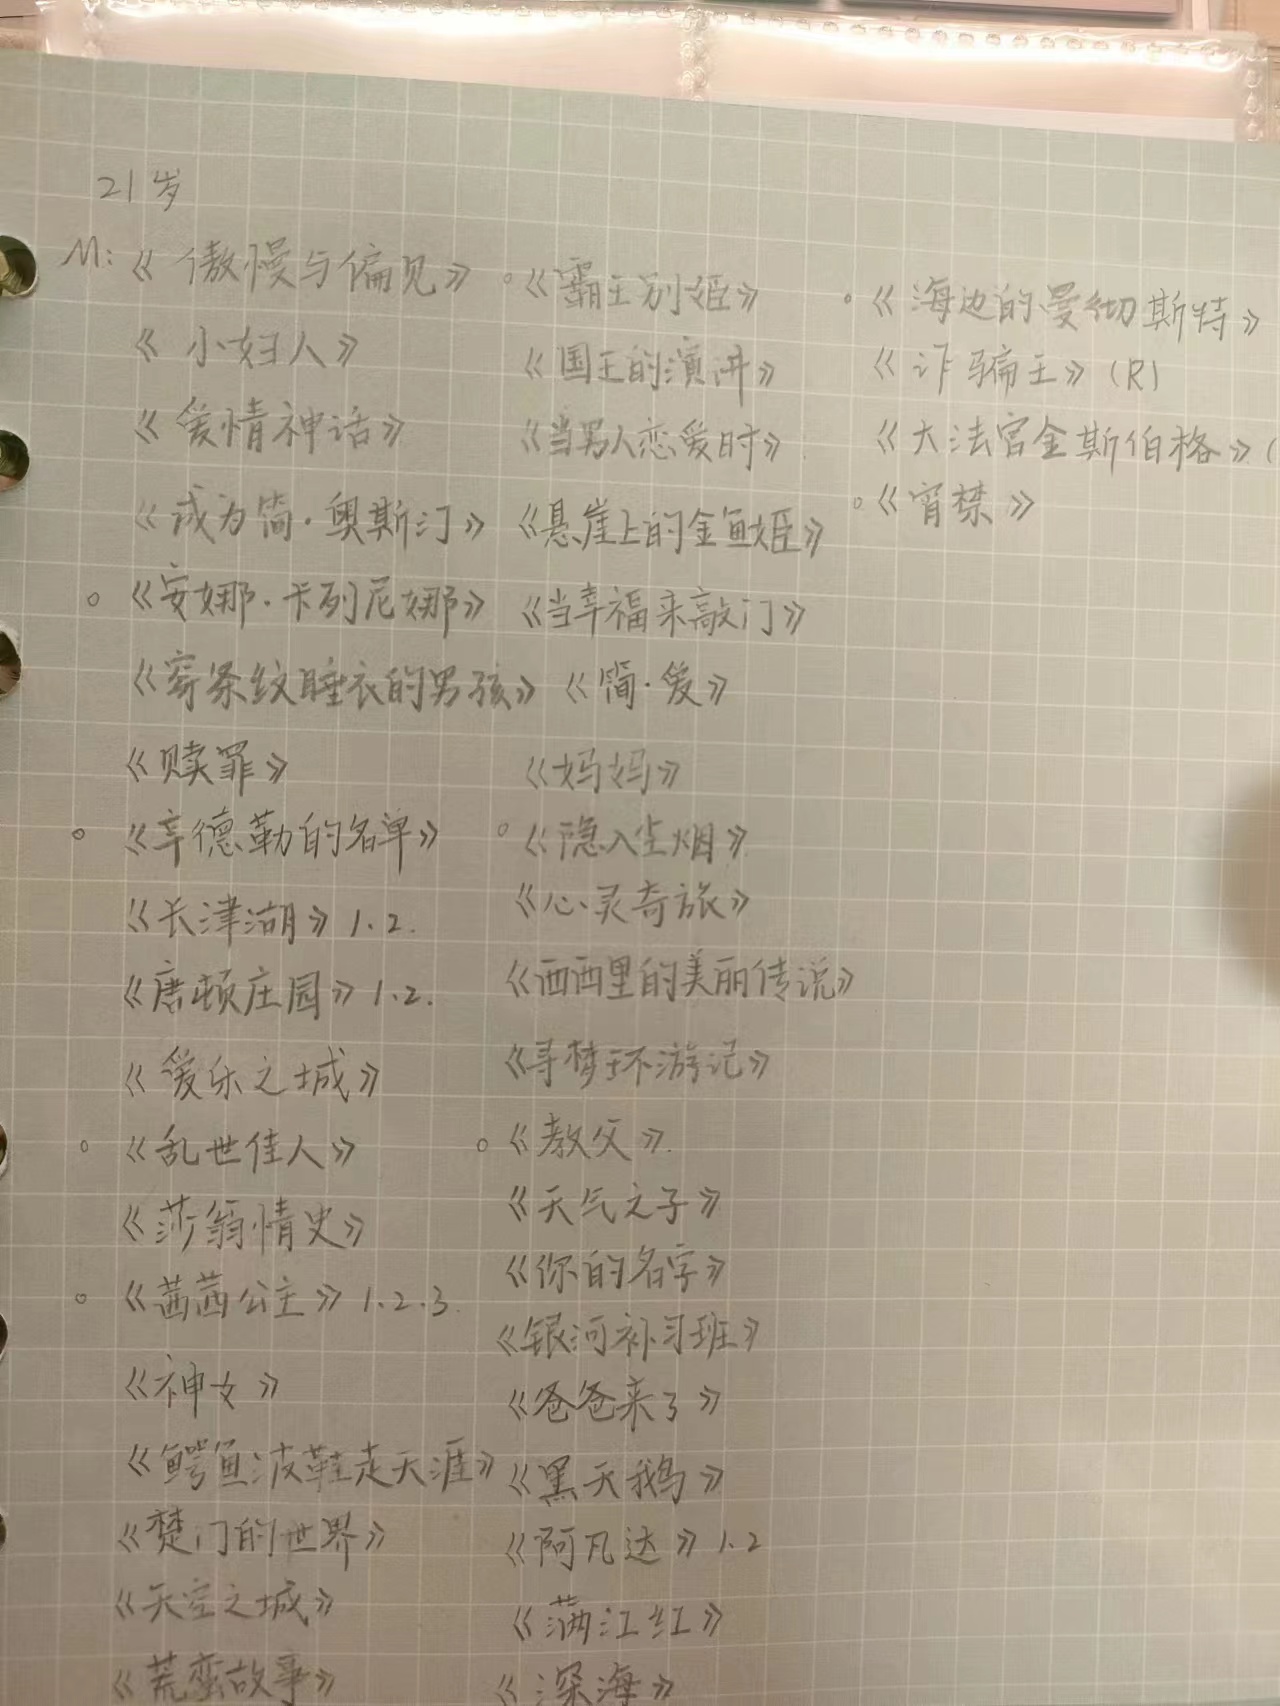 21岁
M:《傲慢与偏见》
《小妇人》
《爱情神话》
《成为简·奥斯汀》
。《安娜·卡列尼娜》
《穿条纹睡衣的男孩》
《赎罪》
。《辛德勒的名单》
《长津湖》1.2.
《唐顿庄园》1.2.
《爱乐之城》
。《乱世佳人》
《莎翁情史》
。《茜茜公主》1.2.3.
《神女》
《鳄鱼波鞋走天涯》
《楚门的世界》
《天空之城》
《荒蛮故事》
。《霸王别姬》
《国王的演讲》
《当男人恋爱时》
《悬崖上的金鱼姬》
《当幸福来敲门》
《简·爱》
《妈妈》
。《隐入尘烟》
《心灵奇旅》
《西西里的美丽传说》
《寻梦环游记》
。《教父》.
《天气之子》
《你的名字》
《银河补习班》
《爸爸来了》
《黑天鹅》
《阿凡达》1.2
《满江红》
《深海》
。《海边的曼彻斯特》
《诈骗王》(R)
《大法官金斯伯格》(
。《宵禁》